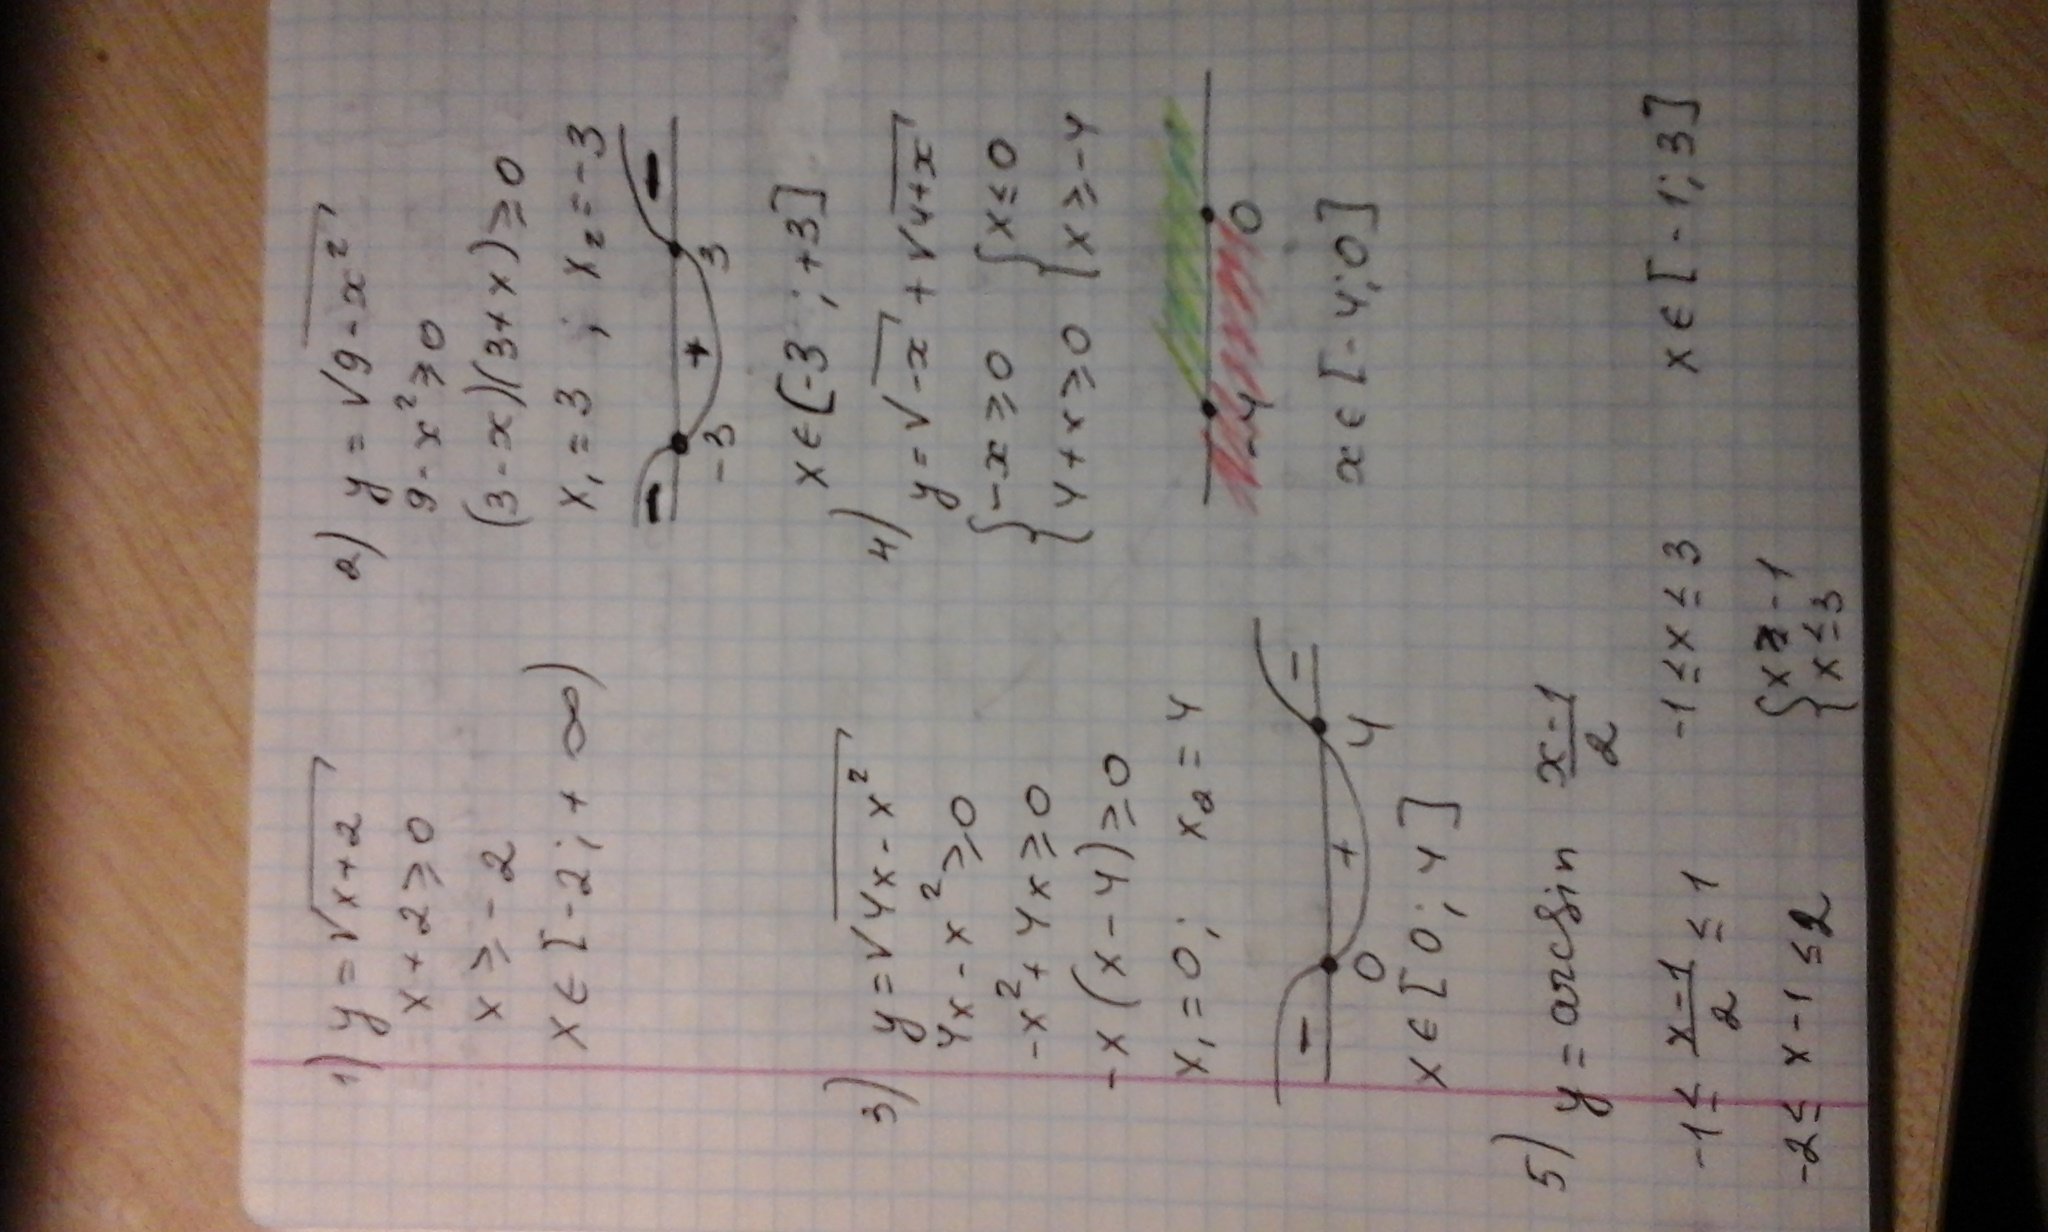 1) y = √x+2
x + 2 ≥ 0
x ≥ -2
x ∈ [-2; + ∞)
2) y = √9-x²
9-x² ≥ 0
(3-x)(3+x) ≥ 0
x₁ = 3 ; x₂ = -3
- + -
-3 3
x ∈ [-3 ; +3]
3) y = √4x - x²
4x - x² ≥ 0
-x² + 4x ≥ 0
-x (x - 4) ≥ 0
x₁ = 0; x₂ = 4
- + -
0 4
x ∈ [0 ; 4]
4) y = √-x + √4+x
{ -x ≥ 0 { x ≤ 0
{ 4 + x ≥ 0 { x ≥ -4
-4 0
x ∈ [-4; 0]
5) y = arcsin x-1/2
-1 ≤ x-1/2 ≤ 1 -1 ≤ x ≤ 3 x ∈ [-1; 3]
-2 ≤ x-1 ≤ 2 { x ≥ -1
{ x ≤ 3